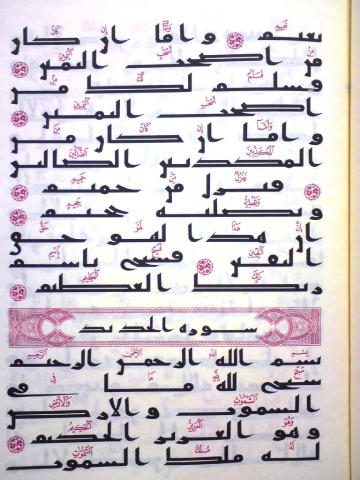 نعيم واما ان كان
من اصحب اليمين
فسلم لك من
اصحب اليمين
واما ان كان من
المكذبين الضالين
فنزل من حميم
وتصليه جحيم
ان هذا لهو حق
اليقين فسبح باسم
ربك العظيم
سوره الحديد
بسم الله الرحمن الرحيم
سبح لله ما في
السموت والارض
وهو العزيز الحكيم
له ملك السموت